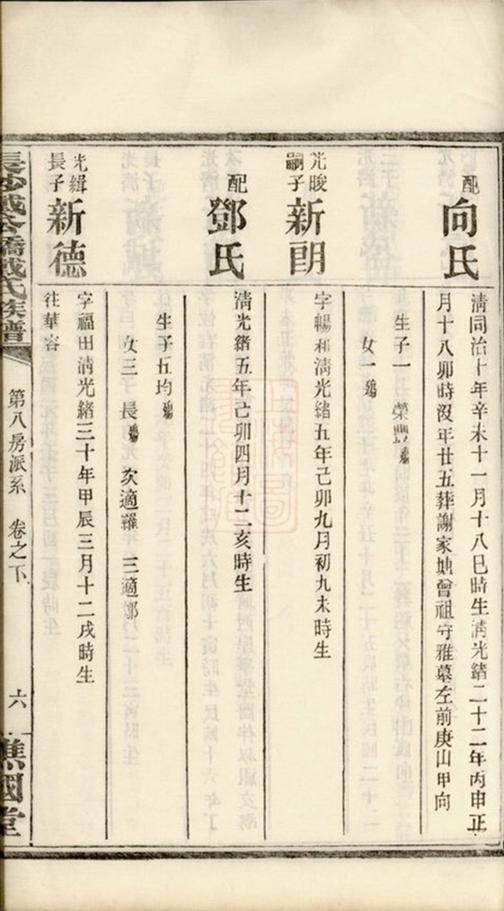 配向氏
清同治十年辛未十一月十八巳時生清光緒二十二年丙申正
月十八卯時沒年廿五葬謝家塘曾祖守雅墓左前庚山甲向
生子一 榮豐殤
女一殤
光暖嗣子新朗
字暢和清光緒五年己卯九月初九未時生
配鄧氏
清光緒五年己卯四月十二亥時生
生子五均殤
女三 長殤 次適羅 三適鄭
光緝長子新德
字福田清光緒三十年甲辰三月十二戌時生
往華容
長沙戴公橋戴氏族譜
第八房派系 卷之下
六
譙國堂